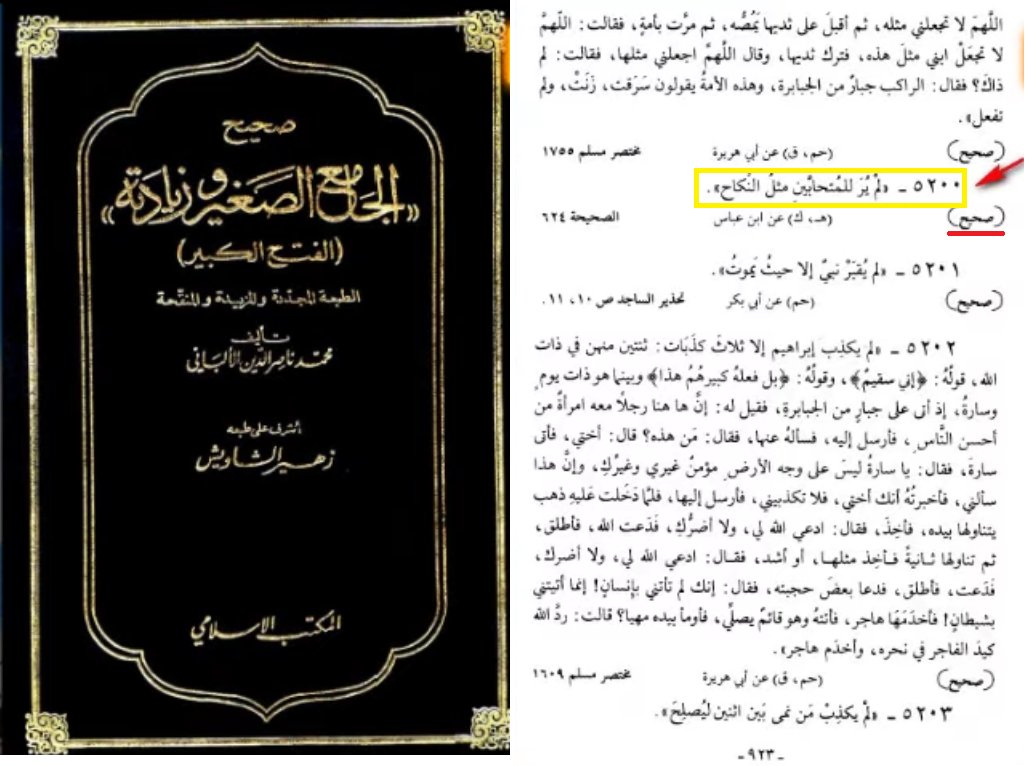 صحيح
الجامع الصغير وزيادته
(الفتح الكبير)
الطبعة المجددة والمزيدة والمنقحة
تأليف
محمد ناصر الدين الألباني
أشرف على طبعه
زهير الشاويش
المكتب الإسلامي
اللَّهمّ لا تجعلني مثله، ثم أقبلَ على ثديها يَمُصُّه، ثم مرَّت بأمةٍ، فقالت: اللهمَّ
لا تجعَلْ ابني مثلَ هذه، فترك ثديها، وقال اللَّهمَّ اجعلني مثلها، فقالت: لم
ذاكَ؟ فقال: الراكب جبارٌ من الجبابرة، وهذه الأمةُ يقولون سَرَقت، زَنَتْ، ولم
تفعل».
(صحيح) (حم، ق) عن أبي هريرة مختصر مسلم ١٧٥٥
٥٢٠٠ - «لمْ يُرَ للمُتحابَّينِ مثلُ النّكاح».
(صحيح) (هـ، ك) عن ابن عباس الصحيحة ٦٢٤
٥٢٠١ - «لم يُقبَرْ نبيٌّ إلا حيثُ يَموتُ».
(صحيح) (حم) عن أبي بكر تحذير الساجد ص ١٠، ١١.
٥٢٠٢ - «لم يكذِب إبراهيم إلا ثلاثَ كذَبَات: ثنتين منهن في ذات
الله، قولُهُ: ﴿إني سقيمٌ﴾، وقولُهُ: ﴿بل فعلهُ كبيرهُمُ هذا﴾ وبينما هو ذات يومٍ
وسارةُ، إذ أتى على جبارٍ من الجبابرةِ، فقيل له: إنَّ ها هنا رجلًا معه امرأةٌ من
أحسن النَّاسِ، فأرسل إليه، فسألهُ عنها، فقال: مَن هذه؟ قال: أختي، فأتى
سارةَ، فقال: يا سارةُ ليسَ على وجه الأرضِ مؤمنٌ غيري وغيرُكِ، وإنَّ هذا
سألني، فأخبرتُهُ أنك أختي، فلا تكذبيني، فأرسل إليها، فلمَّا دَخَلت عَليهِ ذهب
يتناولها بيده، فأخِذَ، فقال: ادعي الله لي، ولا أضرُّكِ، فَدَعت الله، فأطلق،
ثم تناولها ثانيةً فأخِذ مثلها، أو أشد، فقال: ادعي الله لي، ولا أضرك،
فَدَعت، فأطلق، فدعا بعضَ حجبته، فقال: إنك لم تأتني بإنسانٍ! إنما أتيتني
بشيطانٍ! فأخدَمَهَا هاجر، فأتتهُ وهو قائمٌ يصلِّي، فأومأ بيده مهيا؟ قالت: ردَّ الله
كيدَ الفاجر في نحره، وأخدَم هاجر».
(صحيح) (حم، ق) عن أبي هريرة مختصر مسلم ١٦٠٩
٥٢٠٣ - «لمْ يكذِبْ مَن نمى بَين اثنين ليُصلِحَ».
-٩٢٣-